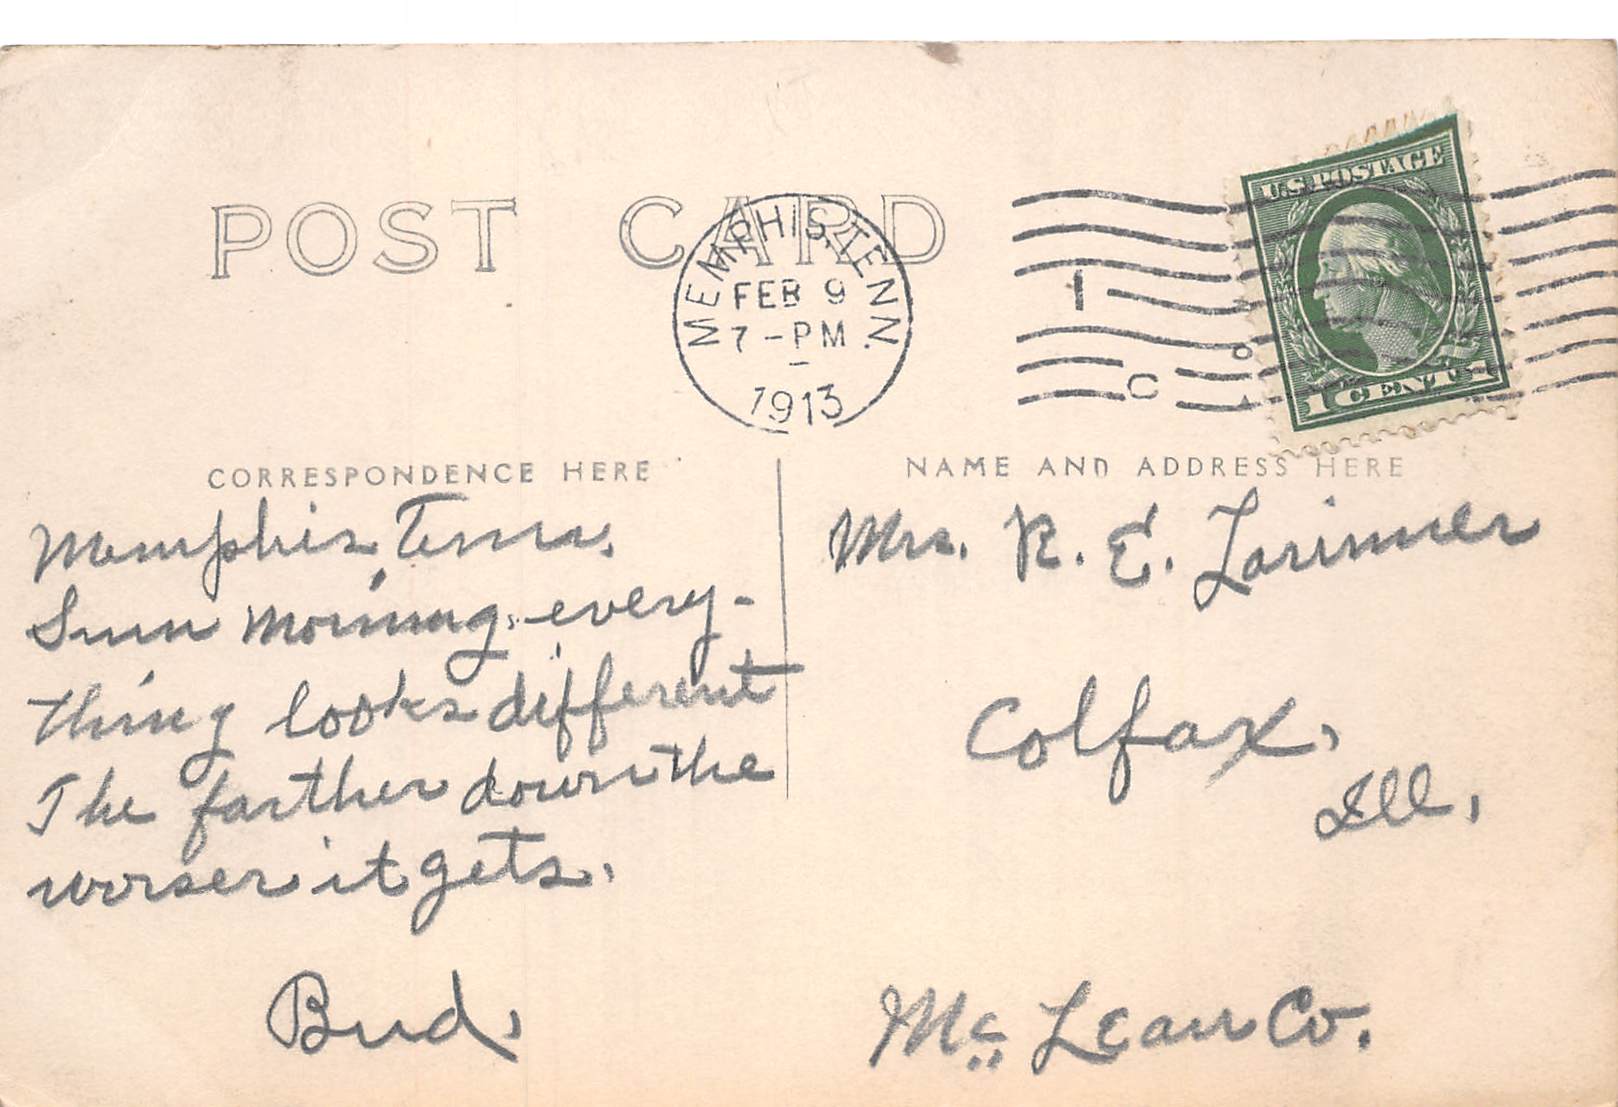 POST CARD
MEMPHIS, TENN.
FEB 9
7-PM
1913
1
C
U.S. POSTAGE
1 CENT 1
CORRESPONDENCE HERE
NAME AND ADDRESS HERE
Memphis, Tenn.
Sun Morning, every-
thing looks different
The farther down the
worser it gets.
Bud.
Mrs. R. E. Lorimer
Colfax,
Ill.
Mc Lean Co.